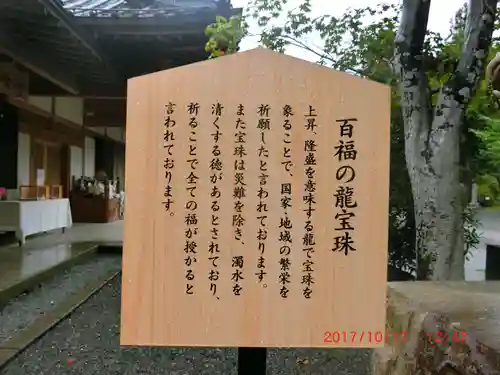 百福の龍宝珠
上昇、隆盛を意味する龍で宝珠を
象ることで、国家・地域の繁栄を
祈願したと言われております。
また宝珠は災難を除き、濁水を
清くする徳があるとされており、
祈ることで全ての福が授かると
言われております。
2017/10/